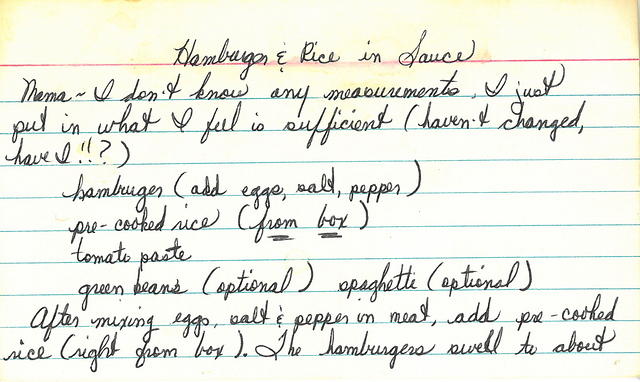 Hamburger & Rice in Sauce
Mama ~ I don't know any measurements, I just
put in what I feel is sufficient (haven't changed,
have I!!?)
hamburger (add eggs, salt, pepper)
pre-cooked rice (from box)
tomato paste
green beans (optional) spaghetti (optional)
After mixing eggs, salt & pepper in meat, add pre-cooked
rice (right from box). The hamburgers swell to about